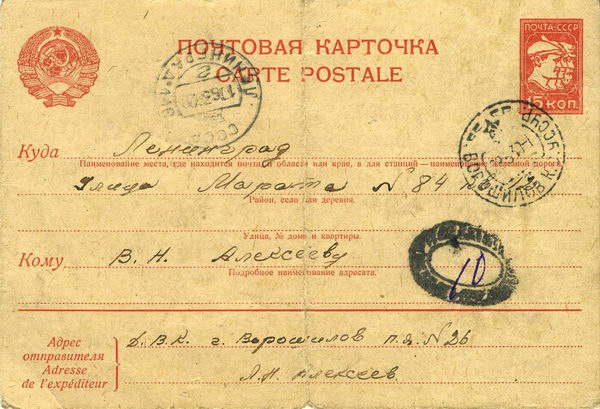 ПОЧТОВАЯ КАРТОЧКА
CARTE POSTALE
ПОЧТА-СССР
15 КОП.
Куда Ленинград
Наименование места, где находится почта и области или края, а для станций — наименование железной дороги.
Улица Марата N 84
Район, село или деревня.
Улица, № дома и квартиры.
Кому В. Н. Алексееву
Подробное наименование адресата.
10
Адрес отправителя
Adresse de l'expéditeur
Д.В.К. г. Ворошилов п.я. N 26
Л.Н. Алексеев.